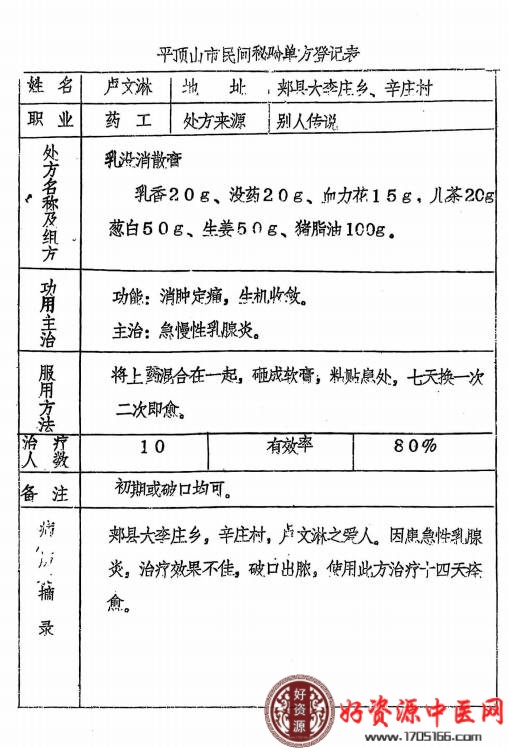 平顶山市民间秘验单方登记表
姓 名 卢文淋 地 址 郏县大李庄乡、辛庄村
职 业 药 工 处方来源 别人传说
处方名称及组方
乳没消散膏
乳香20g、没药20g、血力花15g，儿茶20g
葱白50g、生姜50g、猪脂油100g。
功用主治
功能：消肿定痛，生机收敛。
主治：急慢性乳腺炎。
服用方法
将上药混合在一起，砸成软膏；粘贴患处，七天换一次
二次即愈。
治疗人数 10 有效率 80%
备 注 初期或破口均可。
病 摘录
郏县大李庄乡，辛庄村，卢文淋之爱人。因患急性乳腺
炎，治疗效果不佳，破口出脓，使用此方治疗十四天痊
愈。
好资源
好资源中医网
www.1705166.com